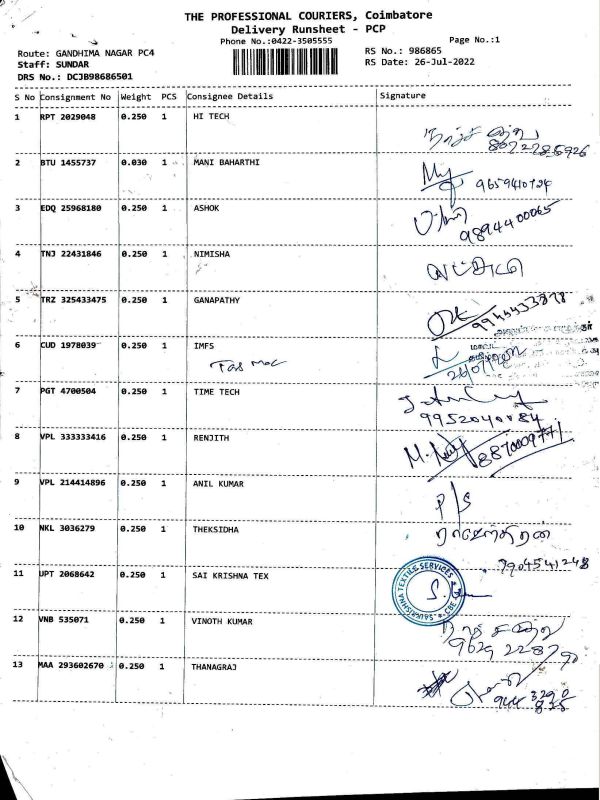 THE PROFESSIONAL COURIERS, Coimbatore
Delivery Runsheet - PCP
Phone No.:0422-3505555
Page No.:1
Route: GANDHIMA NAGAR PC4
RS No.: 986865
Staff: SUNDAR
RS Date: 26-Jul-2022
DRS No.: DCJB98686501
S No Consignment No Weight PCS Consignee Details Signature
1 RPT 2029048 0.250 1 HI TECH
2 BTU 1455737 0.030 1 MANI BAHARTHI
9659410724
3 EDQ 25968180 0.250 1 ASHOK
9894400065
4 TNJ 22431846 0.250 1 NIMISHA
5 TRZ 325433475 0.250 1 GANAPATHY
6 CUD 1978039 0.250 1 IMFS
Tas Mac
7 PGT 4700504 0.250 1 TIME TECH
9952040884
8 VPL 333333416 0.250 1 RENJITH
8870009771
9 VPL 214414896 0.250 1 ANIL KUMAR
P/S
10 NKL 3036279 0.250 1 THEKSIDHA
7904541248
11 UPT 2068642 0.250 1 SAI KRISHNA TEX
12 VNB 535071 0.250 1 VINOTH KUMAR
13 MAA 293602670 0.250 1 THANAGRAJ